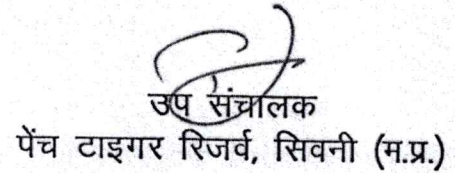 उप संचालक
पेंच टाइगर रिजर्व, सिवनी (म.प्र.)